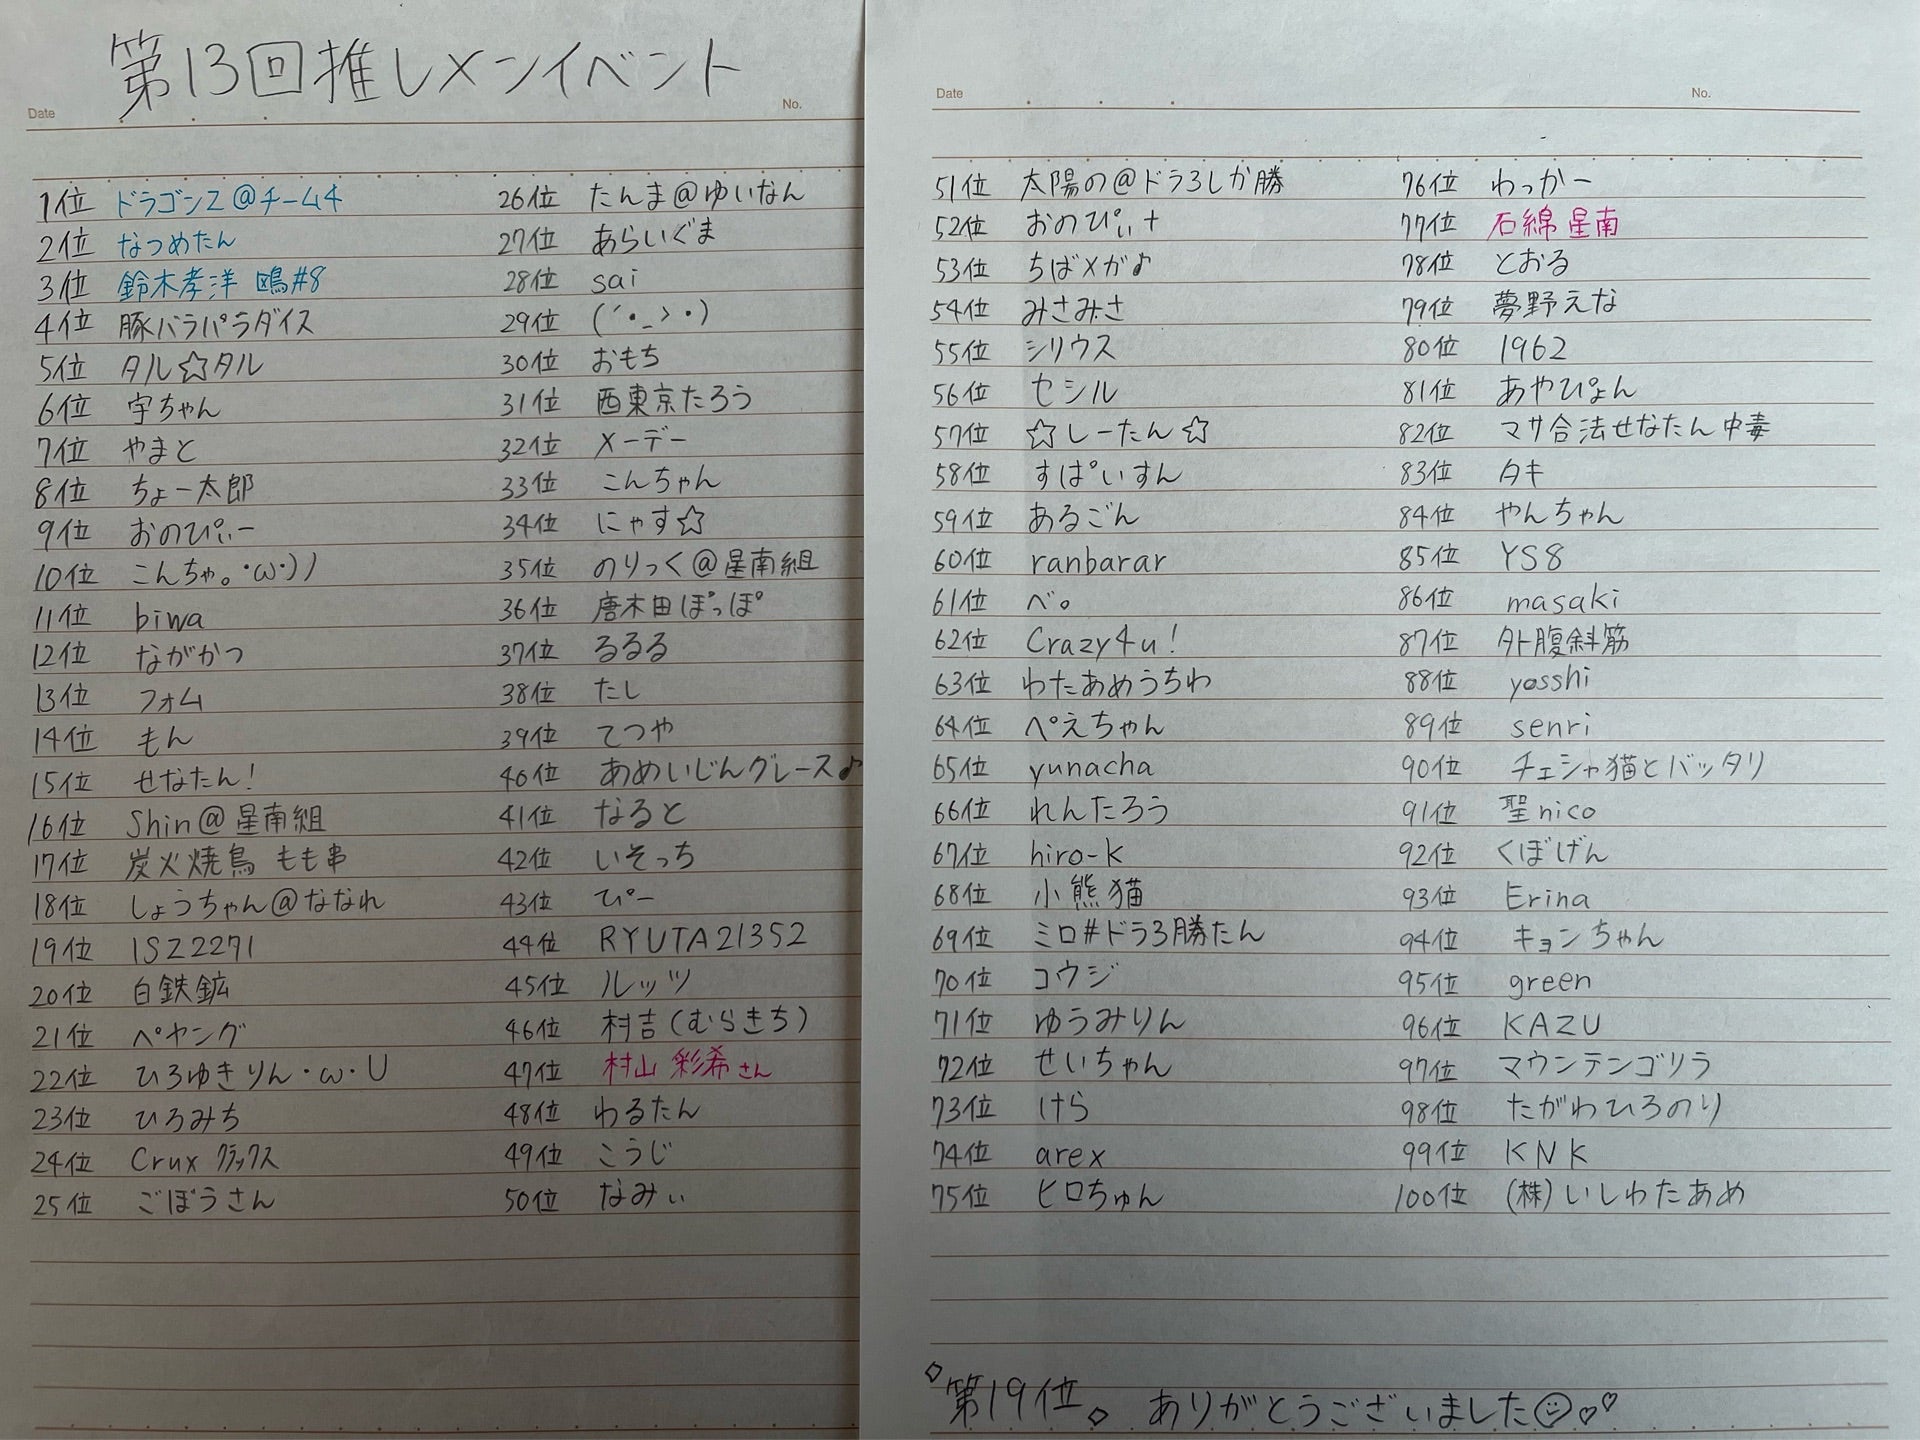 第13回推しメンイベント
Date
No.
1位 ドラゴンZ@チーム4
2位 なつめたん
3位 鈴木孝洋 鴎#8
4位 豚バラパラダイス
5位 タル☆タル
6位 宇ちゃん
7位 やまと
8位 ちょー太郎
9位 おのぴぃー
10位 こんちゃ。・ω・)ノ
11位 biwa
12位 ながかつ
13位 フォム
14位 もん
15位 せなたん!
16位 Shin@星南組
17位 炭火焼鳥 もも串
18位 しょうちゃん@ななれ
19位 ISZ2271
20位 白鉄鉱
21位 ペヤング
22位 ひろゆきりん・ω・U
23位 ひろみち
24位 Crux クラックス
25位 ごぼうさん
26位 たんま@ゆいなん
27位 あらいぐま
28位 sai
29位 (´・_>・)
30位 おもち
31位 西東京たろう
32位 メーデー
33位 こんちゃん
34位 にゃす☆
35位 のりっく@星南組
36位 唐木田ぽっぽ
37位 るるる
38位 たし
39位 てつや
40位 あめいじんグレース♪
41位 なると
42位 いそっち
43位 ぴー
44位 RYUTA21352
45位 ルッツ
46位 村吉(むらきち)
47位 村山 彩希さん
48位 わるたん
49位 こうじ
50位 なみぃ
Date
No.
51位 太陽の@ドラ3しか勝
52位 おのぴぃ+
53位 ちばメガ♪
54位 みさみさ
55位 シリウス
56位 セシル
57位 ☆しーたん☆
58位 すぱいすん
59位 あるごん
60位 ranbarar
61位 べ。
62位 Crazy4u!
63位 わたあめうちわ
64位 ぺえちゃん
65位 yunacha
66位 れんたろう
67位 hiro-k
68位 小熊猫
69位 ミロ#ドラ3勝たん
70位 コウジ
71位 ゆうみりん
72位 せいちゃん
73位 けら
74位 arex
75位 ヒロちゅん
76位 わっかー
77位 石綿星南
78位 とおる
79位 夢野えな
80位 1962
81位 あやぴょん
82位 マサ合法せなたん中毒
83位 タキ
84位 やんちゃん
85位 YS8
86位 masaki
87位 外腹斜筋
88位 yosshi
89位 senri
90位 チェシャ猫とバッタリ
91位 聖nico
92位 くぼげん
93位 Erina
94位 キョンちゃん
95位 green
96位 KAZU
97位 マウンテンゴリラ
98位 たがわひろのり
99位 KNK
100位 (株)いしわたあめ
第19位。ありがとうございました